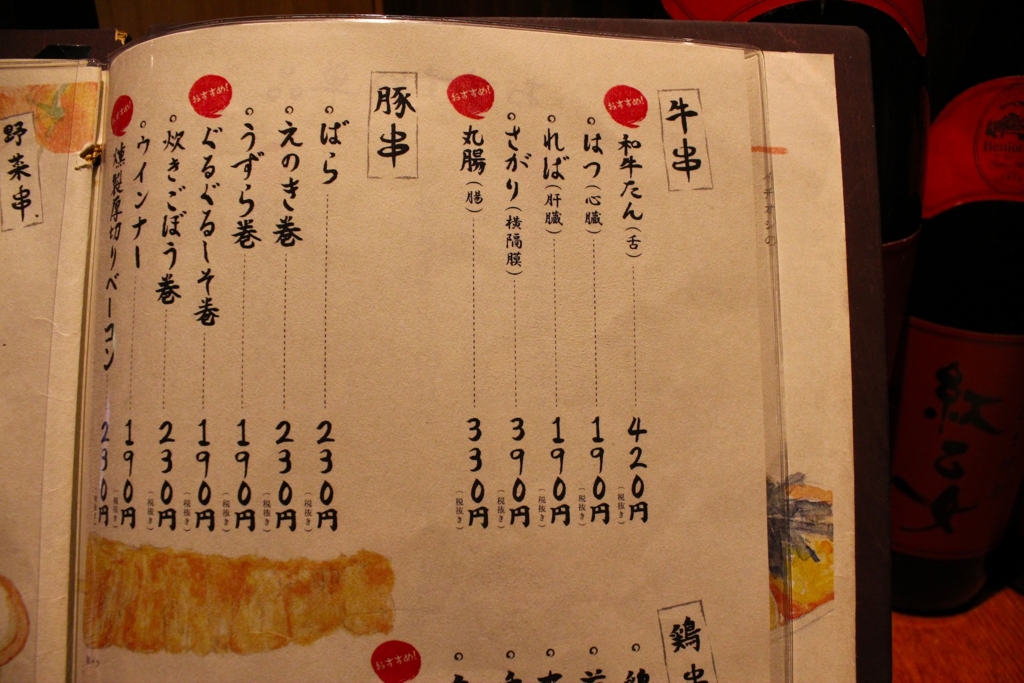 牛串
おすすめ!
和牛たん(舌) 420円(税抜き)
はつ(心臓) 190円(税抜き)
ればー(肝臓) 190円(税抜き)
さがり(横隔膜) 390円(税抜き)
おすすめ!
丸腸(腸) 330円(税抜き)
豚串
ばら 230円(税抜き)
えのき巻 230円(税抜き)
うずら巻 190円(税抜き)
おすすめ!
ぐるぐるしそ巻 190円(税抜き)
炊きごぼう巻 230円(税抜き)
ウインナー 190円
燻製厚切りベーコン 230円
鶏串
おすすめ!
野菜串
紅乙女